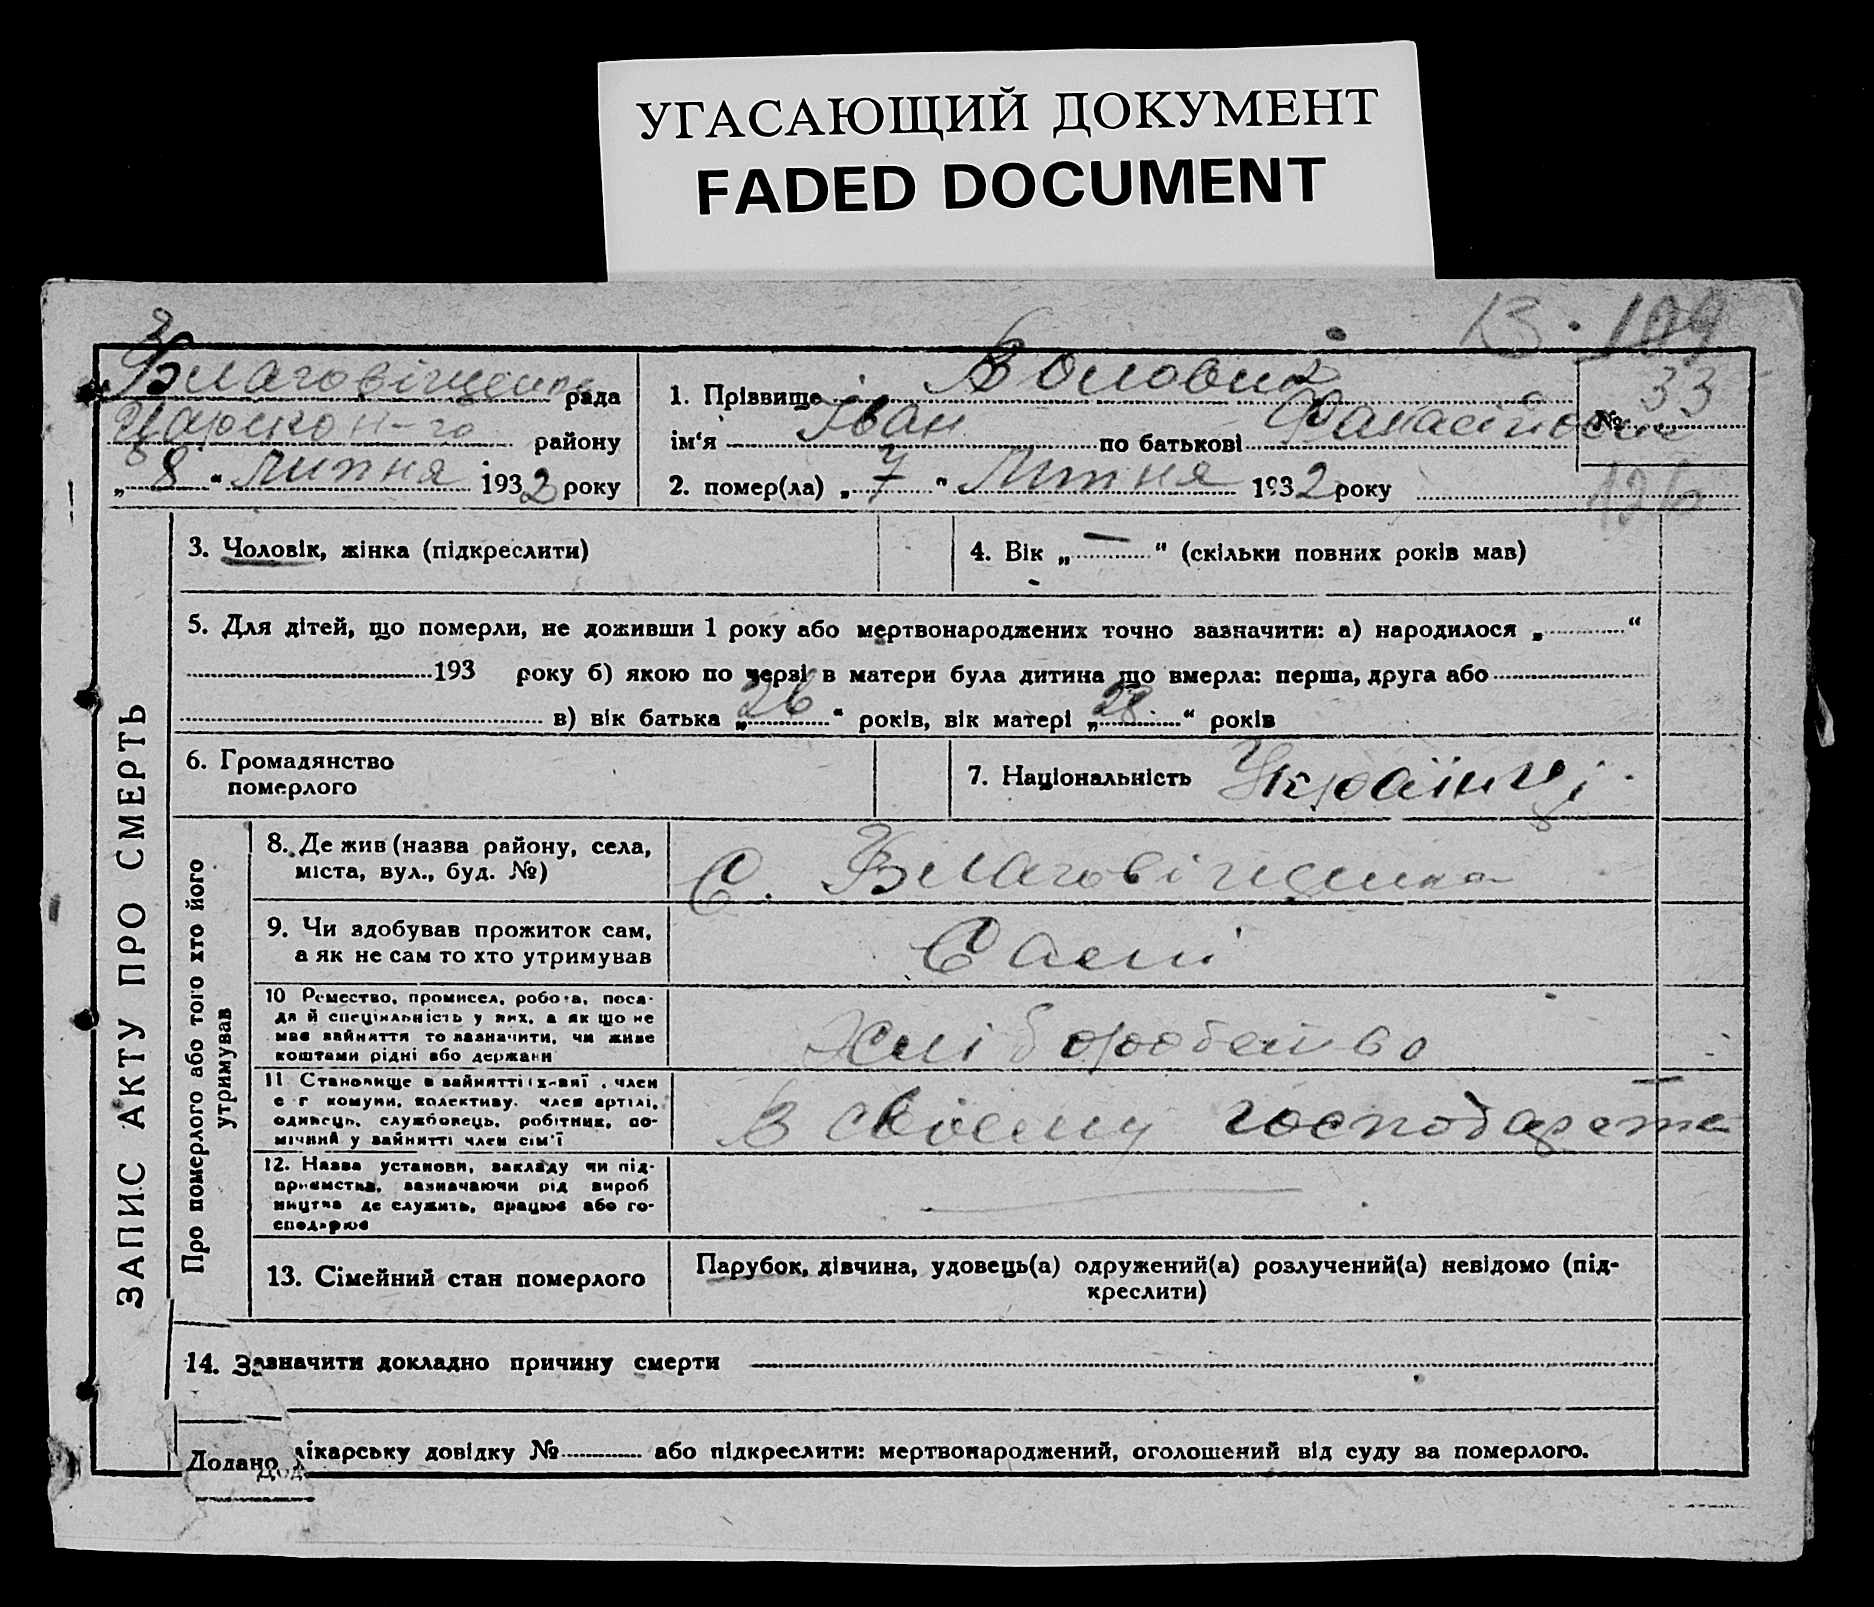 УГАСАЮЩИЙ ДОКУМЕНТ
FADED DOCUMENT
В. 109
Благовіщенк рада
району
„ 8 “ липня 1932 року
1. Прізвище Волович
ім‘я Іван по батькові
№ 33
2. помер(ла) „ 7 “ Липня 1932 року
ЗАПИС АКТУ ПРО СМЕРТЬ
3. Чоловік, жінка (підкреслити)
4. Вік „ — “ (скільки повних років мав)
5. Для дітей, що померли, не доживши 1 року або мертвонароджених точно зазначити: а) народилося „ “
193 року б) якою по черзі в матери була дитина що вмерла: перша, друга або
в) вік батька „ 26 “ років, вік матері „ 28 “ років
6. Громадянство
померлого
7. Національність Українці
Про померлого або того хто його
утримував
8. Де жив (назва району, села,
міста, вул., буд. №)
С. Благовіщенка
9. Чи здобував прожиток сам,
а як не сам то хто утримував
Самі
10 Ремество, промисел, робота, поса-
да й спеціяльність у них, а як що не
мав зайняття то зазначити, чи живе
коштами рідні або держави
хліборобство
11 Становище в зайнятті х-вні, член
с г комуни, колективу. член артілі,
одинець, службовець, робітник, по-
мічний у зайнятті член сім'ї
В своєму господарстві
12. Назва установи, закладу чи під-
приємства, зазначаючи рід вироб
ництва де служить, працює або го-
сподарює
13. Сімейний стан померлого
Парубок, дівчина, удовець(а) одружений(а) розлучений(а) невідомо (під-
креслити)
14. Зазначити докладно причину смерти
Додано лікарську довідку № або підкреслити: мертвонароджений, оголошений від суду за померлого.